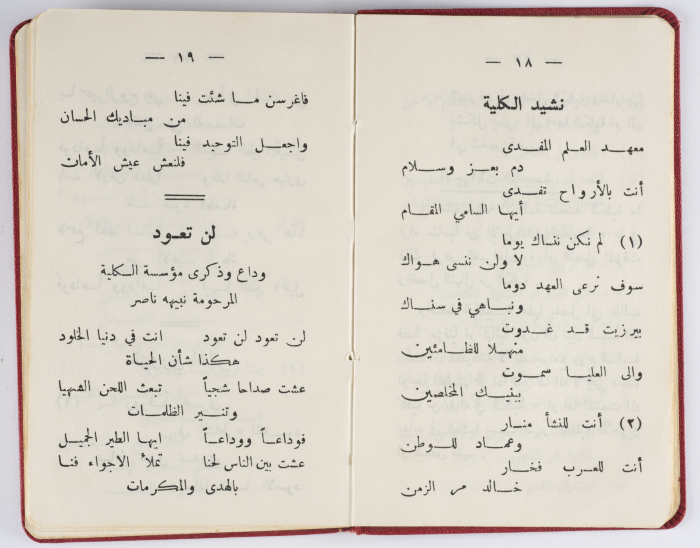 — ١٨ —
نشيد الكلية
معهد العلم المفدى
دم بعز وسلام
أنت بالأرواح تفدى
أيها السامي المقام
(١) لم نكن ننساك يوما
لا ولن ننسى هواك
سوف نرعى العهد دوما
ونباهي في سناك
بيرزيت قد غدوت
منهلا للظامئين
والى العليا سموت
ببنيك المخلصين
(٢) أنت للنشأ منار
وعماد للوطن
أنت للعرب فخار
خالد مر الزمن
— ١٩ —
فاغرسن ما شئت فينا
من مباديك الحسان
واجعل التوحيد فينا
فلنعش عيش الأمان
لن تعود
وداع وذكرى مؤسسة الكلية
المرحومة نبيهه ناصر
لن تعود لن تعود انت في دنيا الخلود
هكذا شأن الحياة
عشت صداحا شجياً تبعث اللحن الشهيا
وتنير الظلمات
فوداعاً ووداعاً ايها الطير الجميل
عشت بين الناس لحنا تملأ الأجواء فنا
بالهدى والمكرمات